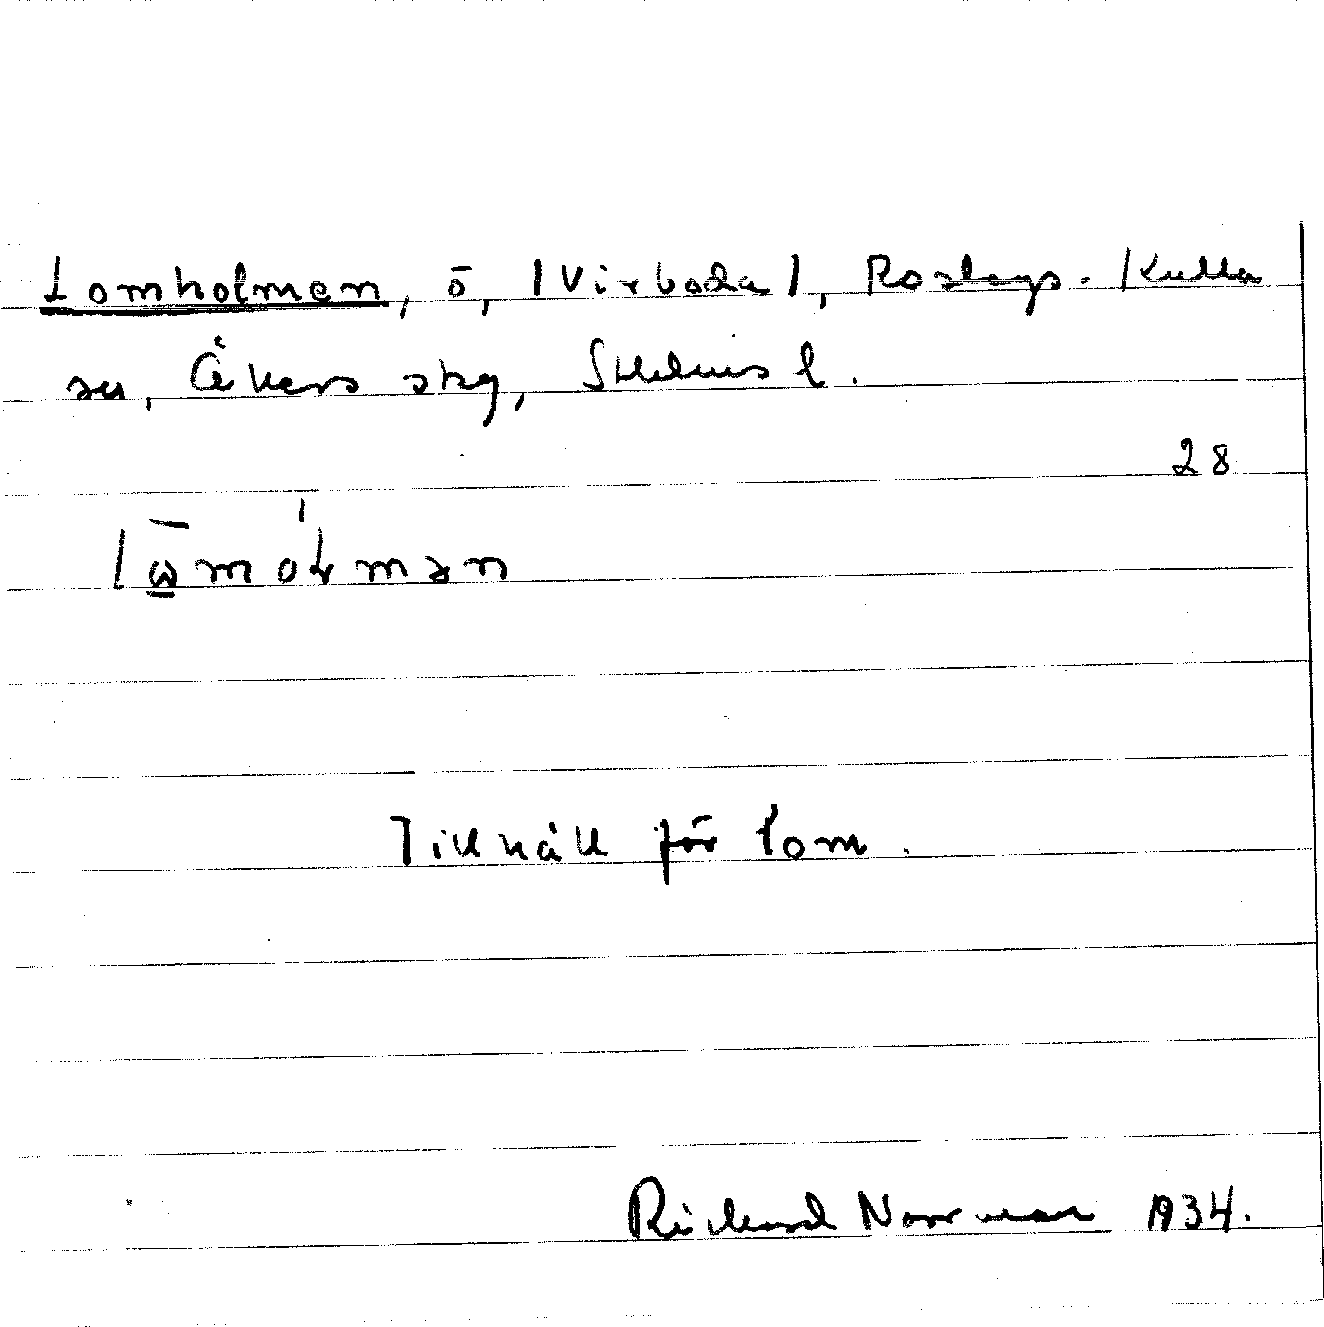 Lomholmen, ö, |Virboda|, Roslags-Kulla
sn, Åkers skg, Sthlms l.
28
Tillhåll för lom.
Richard Norrman 1934.